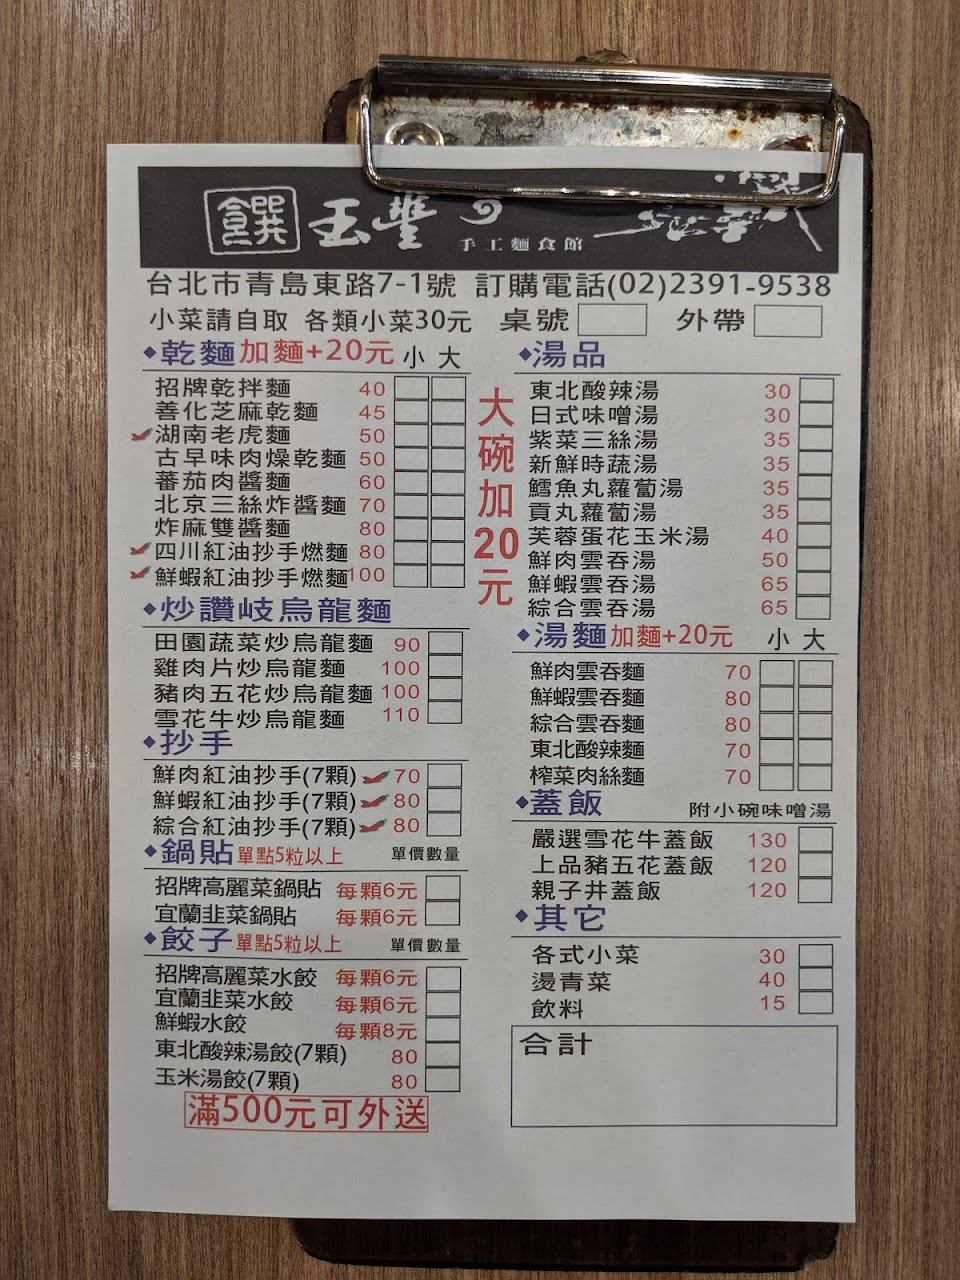 饌 玉豐
手工麵食館
台北市青島東路7-1號 訂購電話(02)2391-9538
小菜請自取 各類小菜30元 桌號 外帶
◆乾麵 加麵+20元 小 大
招牌乾拌麵 40
善化芝麻乾麵 45
湖南老虎麵 50
古早味肉燥乾麵 50
蕃茄肉醬麵 60
北京三絲炸醬麵 70
炸麻雙醬麵 80
四川紅油抄手燃麵 80
鮮蝦紅油抄手燃麵 100
大碗加20元
◆炒讚岐烏龍麵
田園蔬菜炒烏龍麵 90
雞肉片炒烏龍麵 100
豬肉五花炒烏龍麵 100
雪花牛炒烏龍麵 110
◆抄手
鮮肉紅油抄手(7顆) 70
鮮蝦紅油抄手(7顆) 80
綜合紅油抄手(7顆) 80
◆鍋貼 單點5粒以上 單價數量
招牌高麗菜鍋貼 每顆6元
宜蘭韭菜鍋貼 每顆6元
◆餃子 單點5粒以上 單價數量
招牌高麗菜水餃 每顆6元
宜蘭韭菜水餃 每顆6元
鮮蝦水餃 每顆8元
東北酸辣湯餃(7顆) 80
玉米湯餃(7顆) 80
滿500元可外送
◆湯品
東北酸辣湯 30
日式味噌湯 30
紫菜三絲湯 35
新鮮時蔬湯 35
鱈魚丸蘿蔔湯 35
貢丸蘿蔔湯 35
芙蓉蛋花玉米湯 40
鮮肉雲吞湯 50
鮮蝦雲吞湯 65
綜合雲吞湯 65
◆湯麵 加麵+20元 小 大
鮮肉雲吞麵 70
鮮蝦雲吞麵 80
綜合雲吞麵 80
東北酸辣麵 70
榨菜肉絲麵 70
◆蓋飯 附小碗味噌湯
嚴選雪花牛蓋飯 130
上品豬五花蓋飯 120
親子丼蓋飯 120
◆其它
各式小菜 30
燙青菜 40
飲料 15
合計